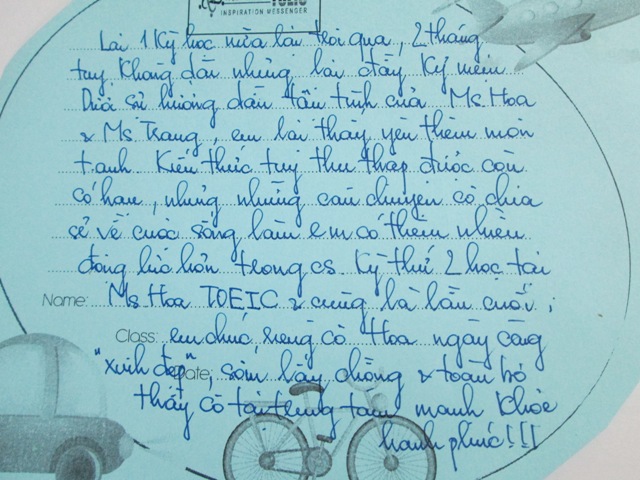 TOEIC
INSPIRATION MESSENGER
Lại 1 kỳ học nữa lại trôi qua, 2 tháng
tuy không dài nhưng lại đầy kỷ niệm
Dưới sự hướng dẫn tận tình của Ms Hoa
& Ms Trang, em lại thấy yêu thêm môn
t.anh. Kiến thức tuy thu thập được còn
có hạn, nhưng những câu chuyện cô chia
sẻ về cuộc sống làm em có thêm nhiều
động lực hơn trong cs. Kỳ thứ 2 học tại
Name: Ms Hoa TOEIC & cũng là lần cuối,
Class: em chúc riêng cô Hoa ngày càng
"xinh đẹp", sớm lấy chồng & toàn bộ
Date:
thầy cô tại trung tâm mạnh khỏe
hạnh phúc!!!